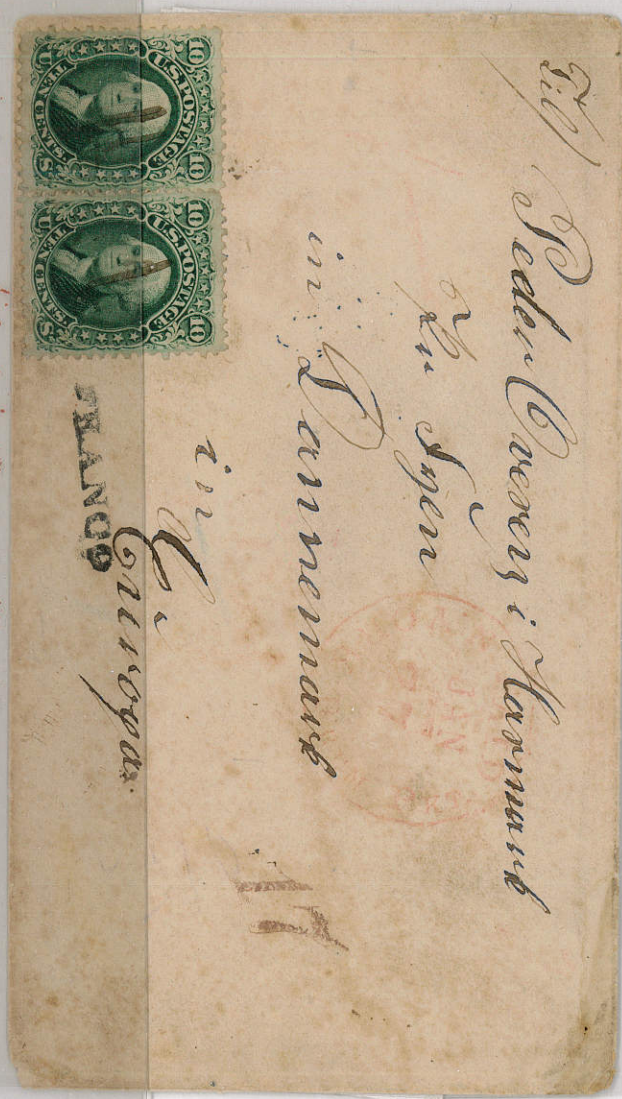 Til)
Peder Oversen i Harmark
Zu Fyen
in Dannemark
in
Euuropa.
FRANCO
U.S. POSTAGE
10 10
TEN CENTS.
U.S. POSTAGE
10 10
TEN CENTS.